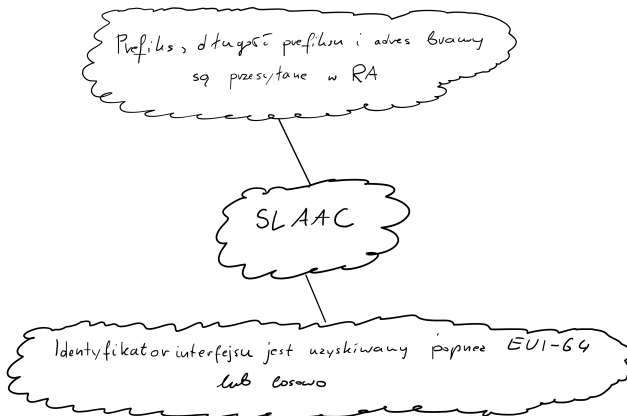 Prefiks, długość prefiksu i adres bramy
są przesyłane w RA
SLAAC
Identyfikator interfejsu jest uzyskiwany poprzez EUI-64
lub losowo